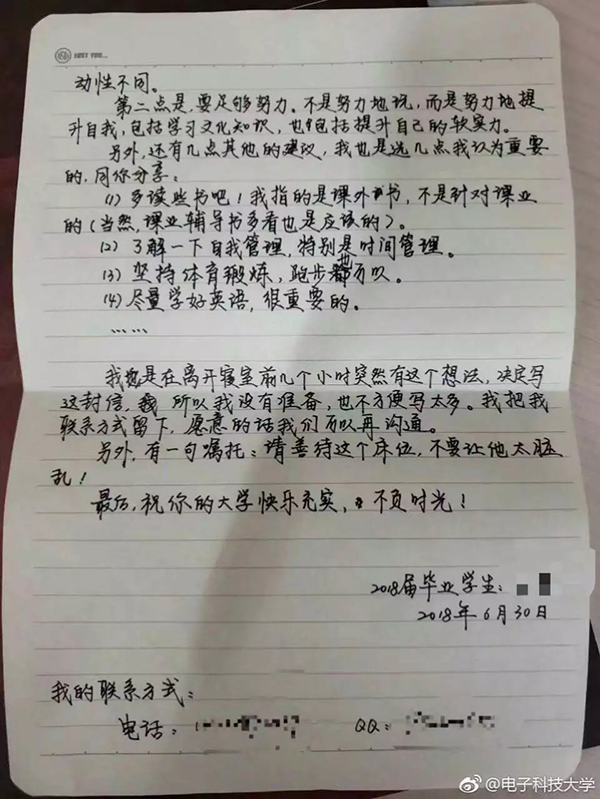 JUST YOU...
动性不同。
第二点是,要足够努力。不是努力地玩,而是努力地提
升自我,包括学习文化知识,也包括提升自己的软实力。
另外,还有几点其他的建议,我也是选几点我认为重要
的,同你分享:
(1) 多读些书吧!我指的是课外书,不是针对课业
的(当然,课业辅导书多看也是应该的)。
(2) 了解一下自我管理,特别是时间管理。
(3) 坚持体育锻炼,跑步也可以。
(4) 尽量学好英语,很重要的。
……
我也是在离开寝室前几个小时突然有这个想法,决定写
这封信,所以我没有准备,也不方便写太多。我把我
联系方式留下,愿意的话我们可以再沟通。
另外,有一句嘱托:请善待这个床位,不要让他太脏
乱!
最后,祝你的大学快乐充实,不负时光!
2018届毕业学生:
2018年6月30日
我的联系方式:
电话: QQ:
@电子科技大学